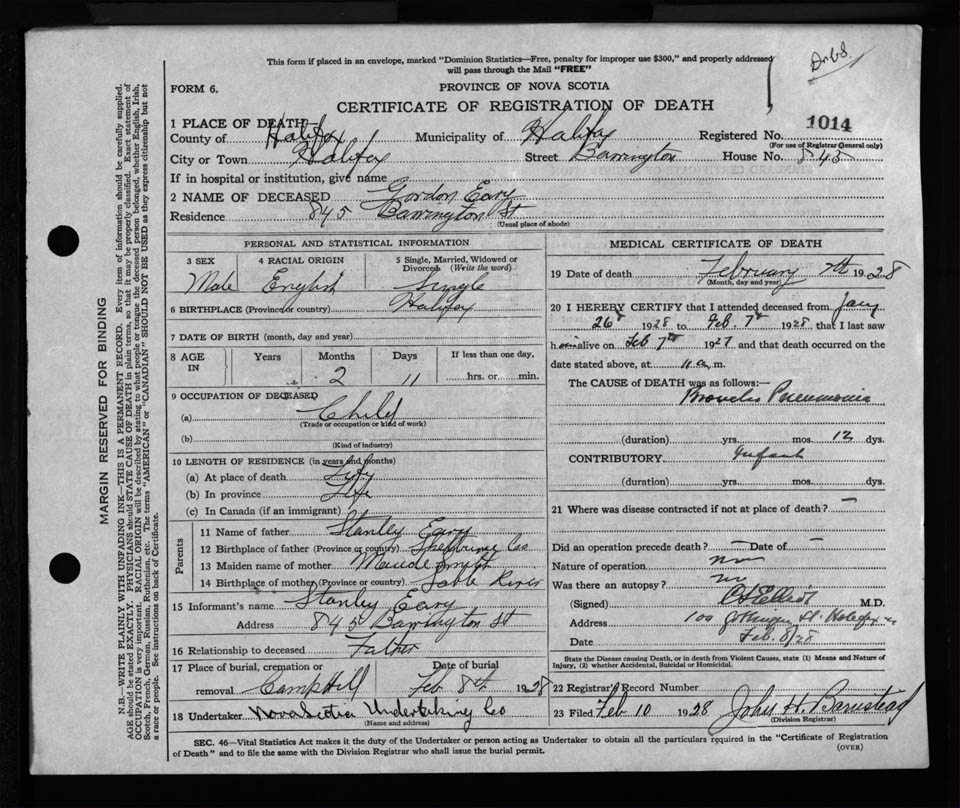 This form if placed in an envelope, marked "Dominion Statistics—Free, penalty for improper use $300," and properly addressed
will pass through the Mail "FREE"
FORM 6.
PROVINCE OF NOVA SCOTIA
CERTIFICATE OF REGISTRATION OF DEATH
1 PLACE OF DEATH
County of Halifax Municipality of Halifax Registered No. 1014
(For use of Registrar General only)
City or Town Halifax Street Barrington House No. 845
If in hospital or institution, give name
2 NAME OF DECEASED Gordon Eary
Residence 845 Barrington St
(Usual place of abode)
PERSONAL AND STATISTICAL INFORMATION
3 SEX 4 RACIAL ORIGIN 5 Single, Married, Widowed or Divorced (Write the word)
Male English Single
6 BIRTHPLACE (Province or country) Halifax
7 DATE OF BIRTH (month, day and year)
8 AGE IN Years Months Days If less than one day,
2 11 hrs. or min.
9 OCCUPATION OF DECEASED
(a) Child
(Trade or occupation or kind of work)
(b)
(Kind of industry)
10 LENGTH OF RESIDENCE (in years and months)
(a) At place of death Life
(b) In province Life
(c) In Canada (if an immigrant)
Parents
11 Name of father Stanley Eary
12 Birthplace of father (Province or country) Shelburne Co
13 Maiden name of mother Maude
14 Birthplace of mother (Province or country) Sable River
15 Informant's name Stanley Eary
Address 845 Barrington St
16 Relationship to deceased Father
17 Place of burial, cremation or Date of burial
removal Camp Hill Feb 8th 1928
18 Undertaker Nova Scotia Undertaking Co
(Name and address)
MEDICAL CERTIFICATE OF DEATH
19 Date of death February 7th 1928
(Month, day and year)
20 I HEREBY CERTIFY that I attended deceased from Jany
26th 1928 to Feb. 7th 1928 that I last saw
him alive on Feb 7th 1927 and that death occurred on
date stated above, at 11 a. m.
The CAUSE OF DEATH was as follows:—
Broncho Pneumonia
(duration) yrs. mos. 12 dys.
CONTRIBUTORY Infant
(duration) yrs. mos. dys.
21 Where was disease contracted if not at place of death? —
Did an operation precede death? — Date of —
Nature of operation
Was there an autopsy? no
(Signed) M.D.
Address 100 Gottingen St. Halifax
Date Feb. 8/28
State the Disease causing Death, or in death from Violent Causes, state (1) Means and Nature of
Injury, (2) whether Accidental, Suicidal or Homicidal.
22 Registrar's Record Number
23 Filed Feb 10 1928 John H. Barnstead
(Division Registrar)
SEC. 46—Vital Statistics Act makes it the duty of the Undertaker or person acting as Undertaker to obtain all the particulars required in the "Certificate of Registration
of Death" and to file the same with the Division Registrar who shall issue the burial permit.
(OVER)
MARGIN RESERVED FOR BINDING
N.B.—WRITE PLAINLY WITH UNFADING INK—THIS IS A PERMANENT RECORD. Every item of information should be carefully supplied.
AGE should be stated EXACTLY. PHYSICIANS should STATE CAUSE OF DEATH in plain terms, so that it may be properly classified. Exact statement of
OCCUPATION is very important. RACIAL ORIGIN will be described by stating to what people or tongue the deceased person belonged, whether English, Irish,
Scotch, French, German, Russian, Ruthenian, etc. The terms "AMERICAN" or "CANADIAN" SHOULD NOT BE USED as they express citizenship but not
a race or people. See instructions on back of Certificate.